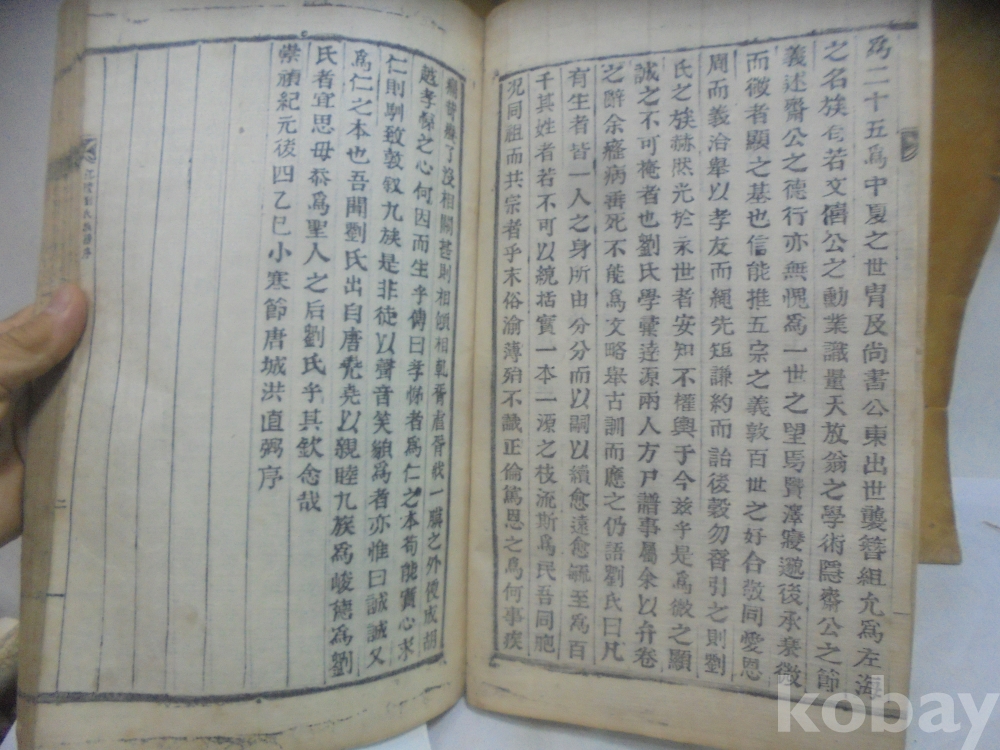 爲二十五爲中夏之世冑及尚書公東出世襲簪組允爲左海
之名族若文僖公之動業識量天放翁之學術隱齋公之節
義述齋公之德行亦無愧爲一世之望焉賢澤寢邈後承衰微
而微者顯之基也信能推五宗之義敦百世之好合敬同愛恩
周而義洽舉以孝友而繩先矩謙約而詒後穀勿替引之則劉
氏之族赫然光於永世者安知不權輿于今玆乎是爲微之顯
誠之不可掩者也劉氏學彙逵源兩人方尸譜事屬余以弁卷
之辭余癃病垂死不能爲文略擧古訓而應之仍語劉氏曰凡
有生者皆一人之身所由分分而以嗣以續愈遠愈毓至爲百
千其姓者若不可以統括實一本一源之枝流斯爲民吾同胞
况同祖而共宗者乎末俗渝薄殆不識正倫篤恩之爲何事疾
痛苛癢了沒相關甚則相傾相軋一膜之外便成胡
越孝悌之心何因而生乎傳曰孝悌者爲仁之本苟能實心求
仁則馴致敦叙九族是非徒以聲音笑貌爲者亦惟曰誠誠又
爲仁之本也吾聞劉氏出自唐堯堯以親睦九族爲峻德爲劉
氏者宜思毋忝爲聖人之后劉氏乎其欽念哉
崇禎紀元後四乙巳小寒節唐城洪直弼序
劉氏族譜序
二
kobay